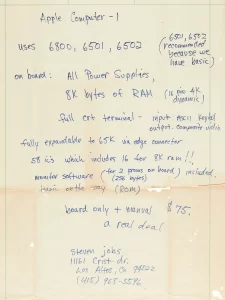 Apple Computer - 1
6501, 6502
(recommended
because we
have basic)
uses 6800, 6501, 6502
on board: All Power Supplies,
8K bytes of RAM (16 pin 4K
dynamic)
full crt terminal - input: ASCII keybd
output: composite video
fully expandable to 65K via edge connector
58 ic's which includes 16 for 8K ram!!,
monitor software (for 2 proms on board) included.
(256 bytes)
basic on the way (ROM)
board only + manual $75.
a real deal
Steven jobs
11161 Crist dr.
Los Altos, Ca
(415)